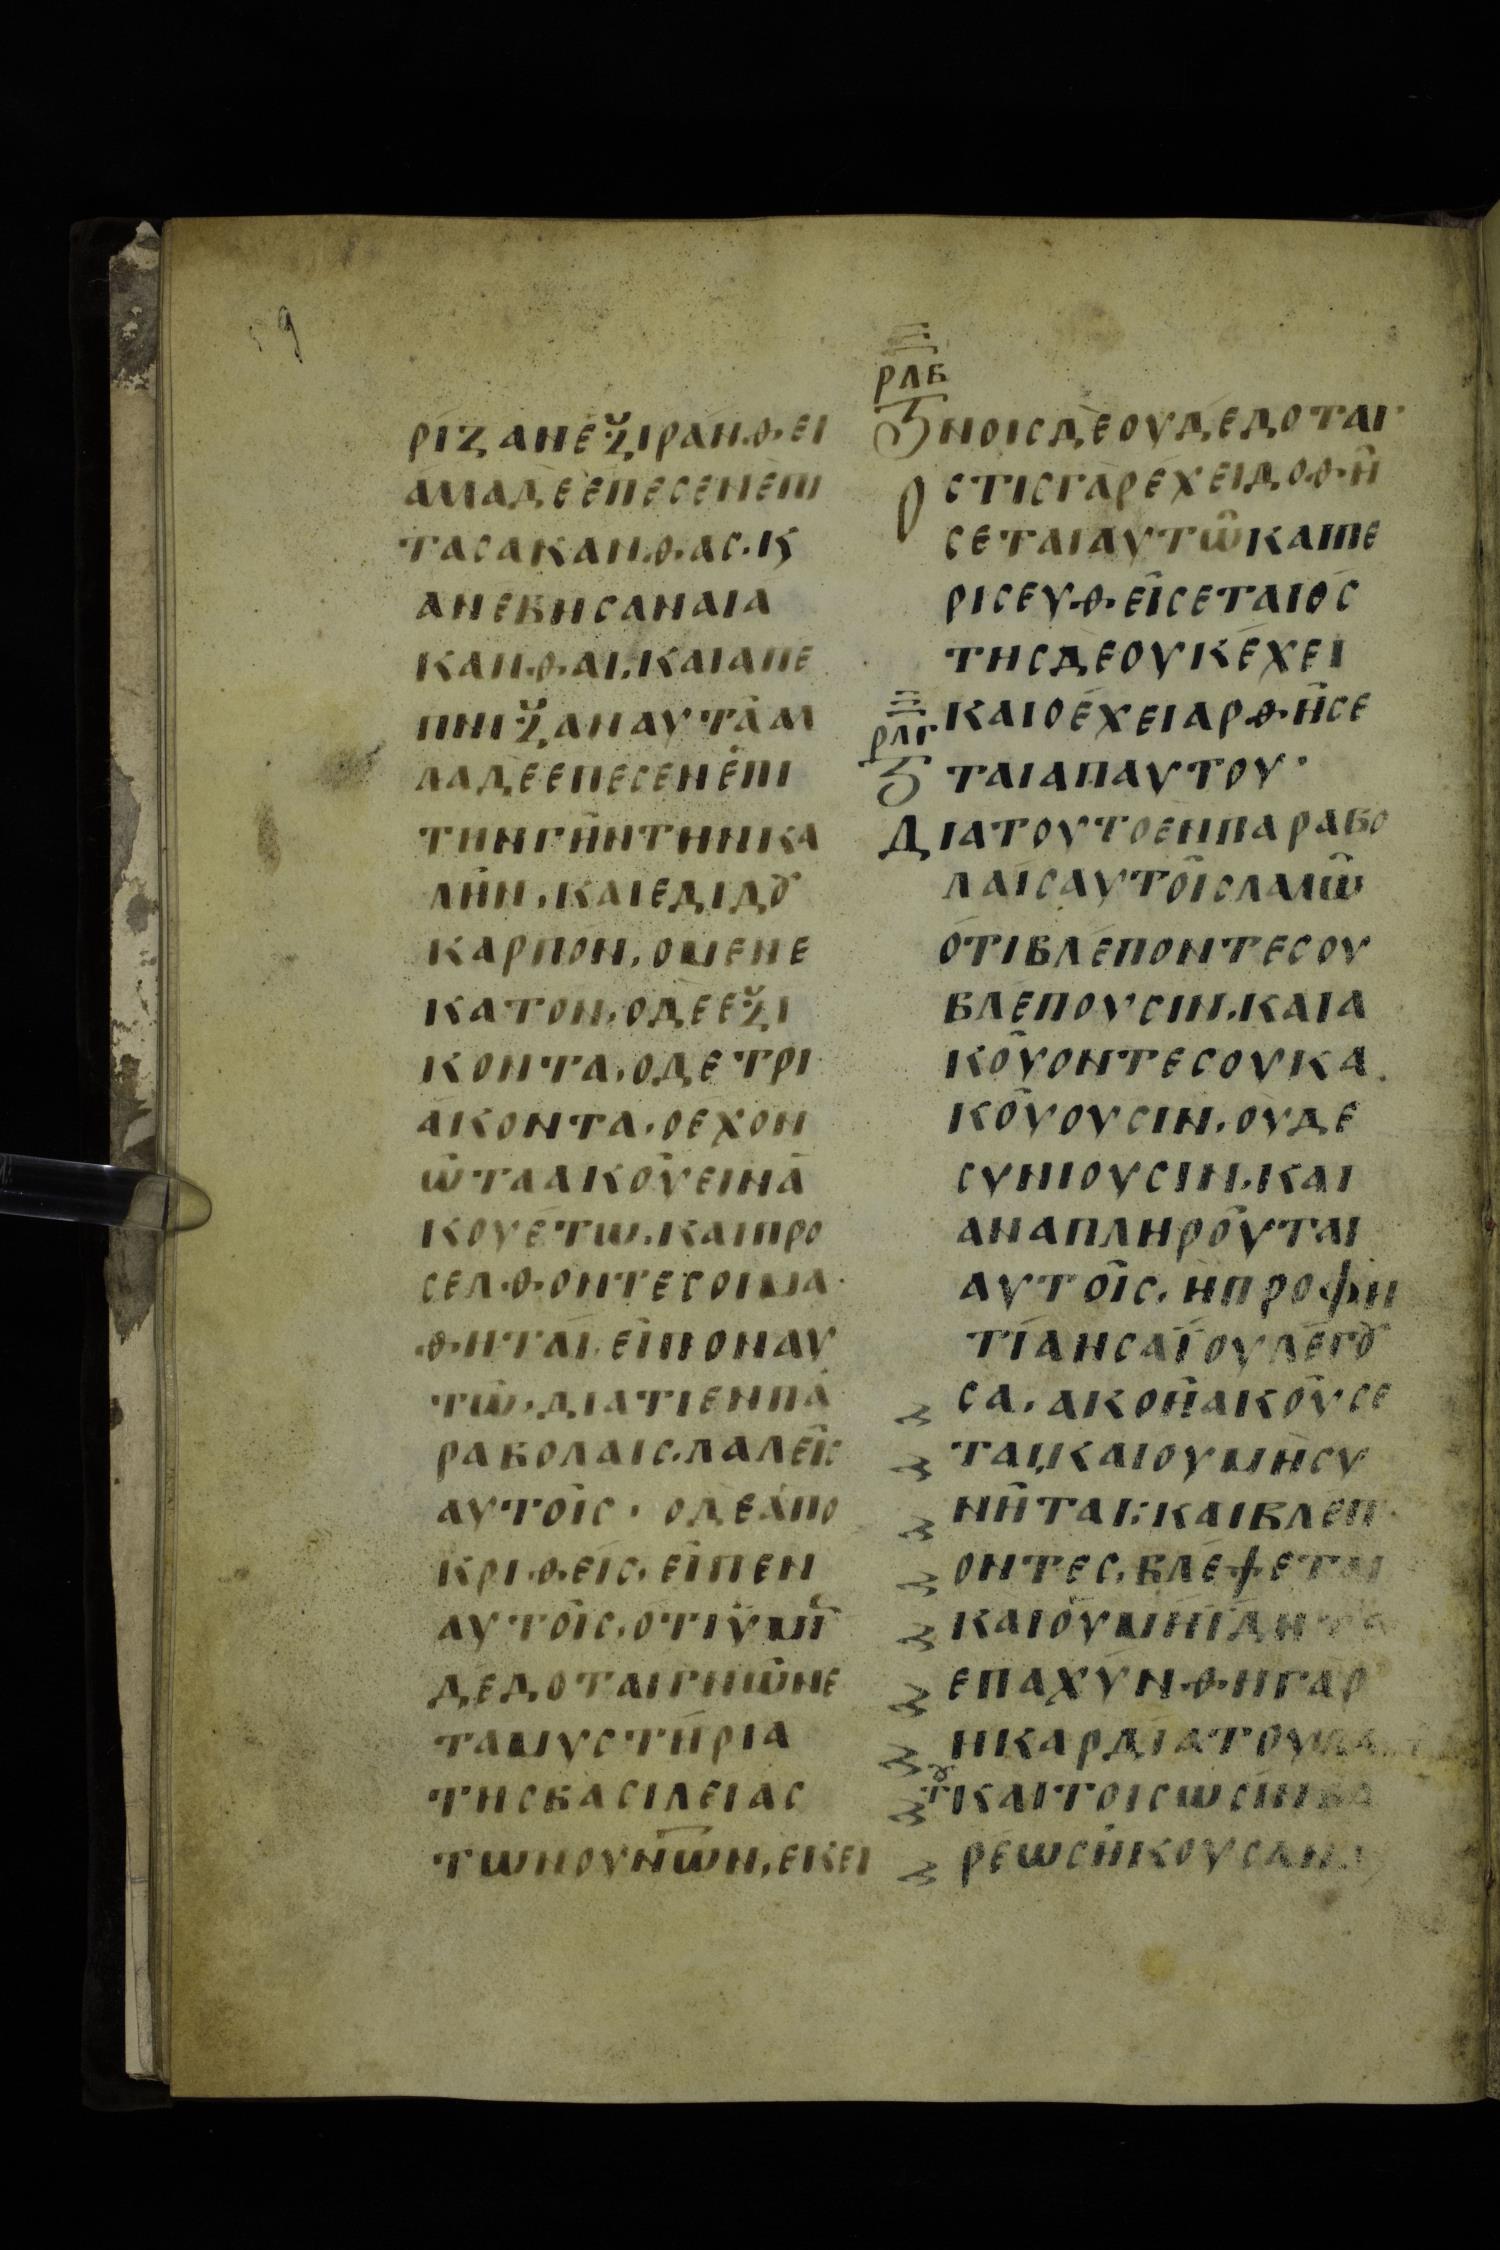 ΡΙΖΑΝΕΞΙΡΑΝΘΕΙ
ΑΜΑΔΕΕΠΕΣΕΝΕΠΙ
ΤΑΣΑΚΑΝΘΑΣ·Κ
ΑΝΕΒΗΣΑΝΑΙΑ
ΚΑΝΘΑΙ·ΚΑΙΑΠΕ
ΠΝΙΞΑΝΑΥΤΑ̂ΜΑ
ΛΑΔΕΕΠΕΣΕΝΕΠΙ
ΤΗΝΓΗ̂ΝΤΗΝΚΑ
ΛΗ̂Ν·ΚΑΙΕΔΙΔȣ
ΚΑΡΠΟΝ·ΟΜΕΝΕ
ΚΑΤΟΝ·ΟΔΕΕΞΙ
ΚΟΝΤΑ·ΟΔΕΤΡΙ
ΑΚΟΝΤΑ·ΟΕΧΟΝ
ΩΤΑΑΚΟΥΕΙΝΑ
ΚΟΥΕΤΩ·ΚΑΙΠΡΟ
ΣΕΛΘΟΝΤΕΣΟΙΜΑ
ΘΗΤΑΙ·ΕΙΠΟΝΑΥ
ΤΩ·ΔΙΑΤΙΕΝΠΑ
ΡΑΒΟΛΑΙΣ·ΛΑΛΕΙΣ
ΑΥΤΟΙΣ· ΟΔΕΑΠΟ
ΚΡΙΘΕΙΣ·ΕΙΠΕΝ
ΑΥΤΟΙΣ·ΟΤΙΫΜΙ̅
ΔΕΔΟΤΑΙΓΝΩΝΕ
ΤΑΜΥΣΤΗΡΙΑ
ΤΗΣΒΑΣΙΛΕΙΑΣ
ΤΩΝΟΥΝ̅Ω̅Ν·ΕΚΕΙ
ΡΛΒ
ΝΟΙΣΔΕΟΥΔΕΔΟΤΑΙ·
ΟΣΤΙΣΓΑΡΕΧΕΙΔΟΘΗ
ΣΕΤΑΙΑΥΤΩΚΑΙΠΕ
ΡΙΣΕΥΘΕΙΣΕΤΑΙΟΣ
ΤΗΣΔΕΟΥΚΕΧΕΙ
ΚΑΙΟΕΧΕΙΑΡΘΗΣΕ
ΡΛΓ
ΤΑΙΑΠΑΥΤΟΥ·
ΔΙΑΤΟΥΤΟΕΝΠΑΡΑΒΟ
ΛΑΙΣΑΥΤΟΙΣΛΑΛΩ
ΟΤΙΒΛΕΠΟΝΤΕΣΟΥ
ΒΛΕΠΟΥΣΙΝ·ΚΑΙΑ
ΚΟΥΟΝΤΕΣΟΥΚΑ
ΚΟΥΟΥΣΙΝ·ΟΥΔΕ
ΣΥΝΙΟΥΣΙΝ·ΚΑΙ
ΑΝΑΠΛΗΡΟΥΤΑΙ
ΑΥΤΟΙΣ·ΗΠΡΟΦΗ
ΤΙΑΗΣΑΪΟΥΛΕΓȣ
ΣΑ·ΑΚΟΗΑΚΟΥΣΕ
ΤΑΙ·ΚΑΙΟΥΜΗΣΥ
ΝΗΤΑΙ·ΚΑΙΒΛΕΠ
ΟΝΤΕΣ·ΒΛΕΨΕΤΑΙ
ΚΑΙΟΥΜΗΙΔΗΤΑ
ΕΠΑΧΥΝΘΗΓΑΡ
ΗΚΑΡΔΙΑΤΟΥΛΑ
Τȣ ΚΑΙΤΟΙΣΩΣΙΝΒΑ
ΡΕΩΣΗΚΟΥΣΑΝ